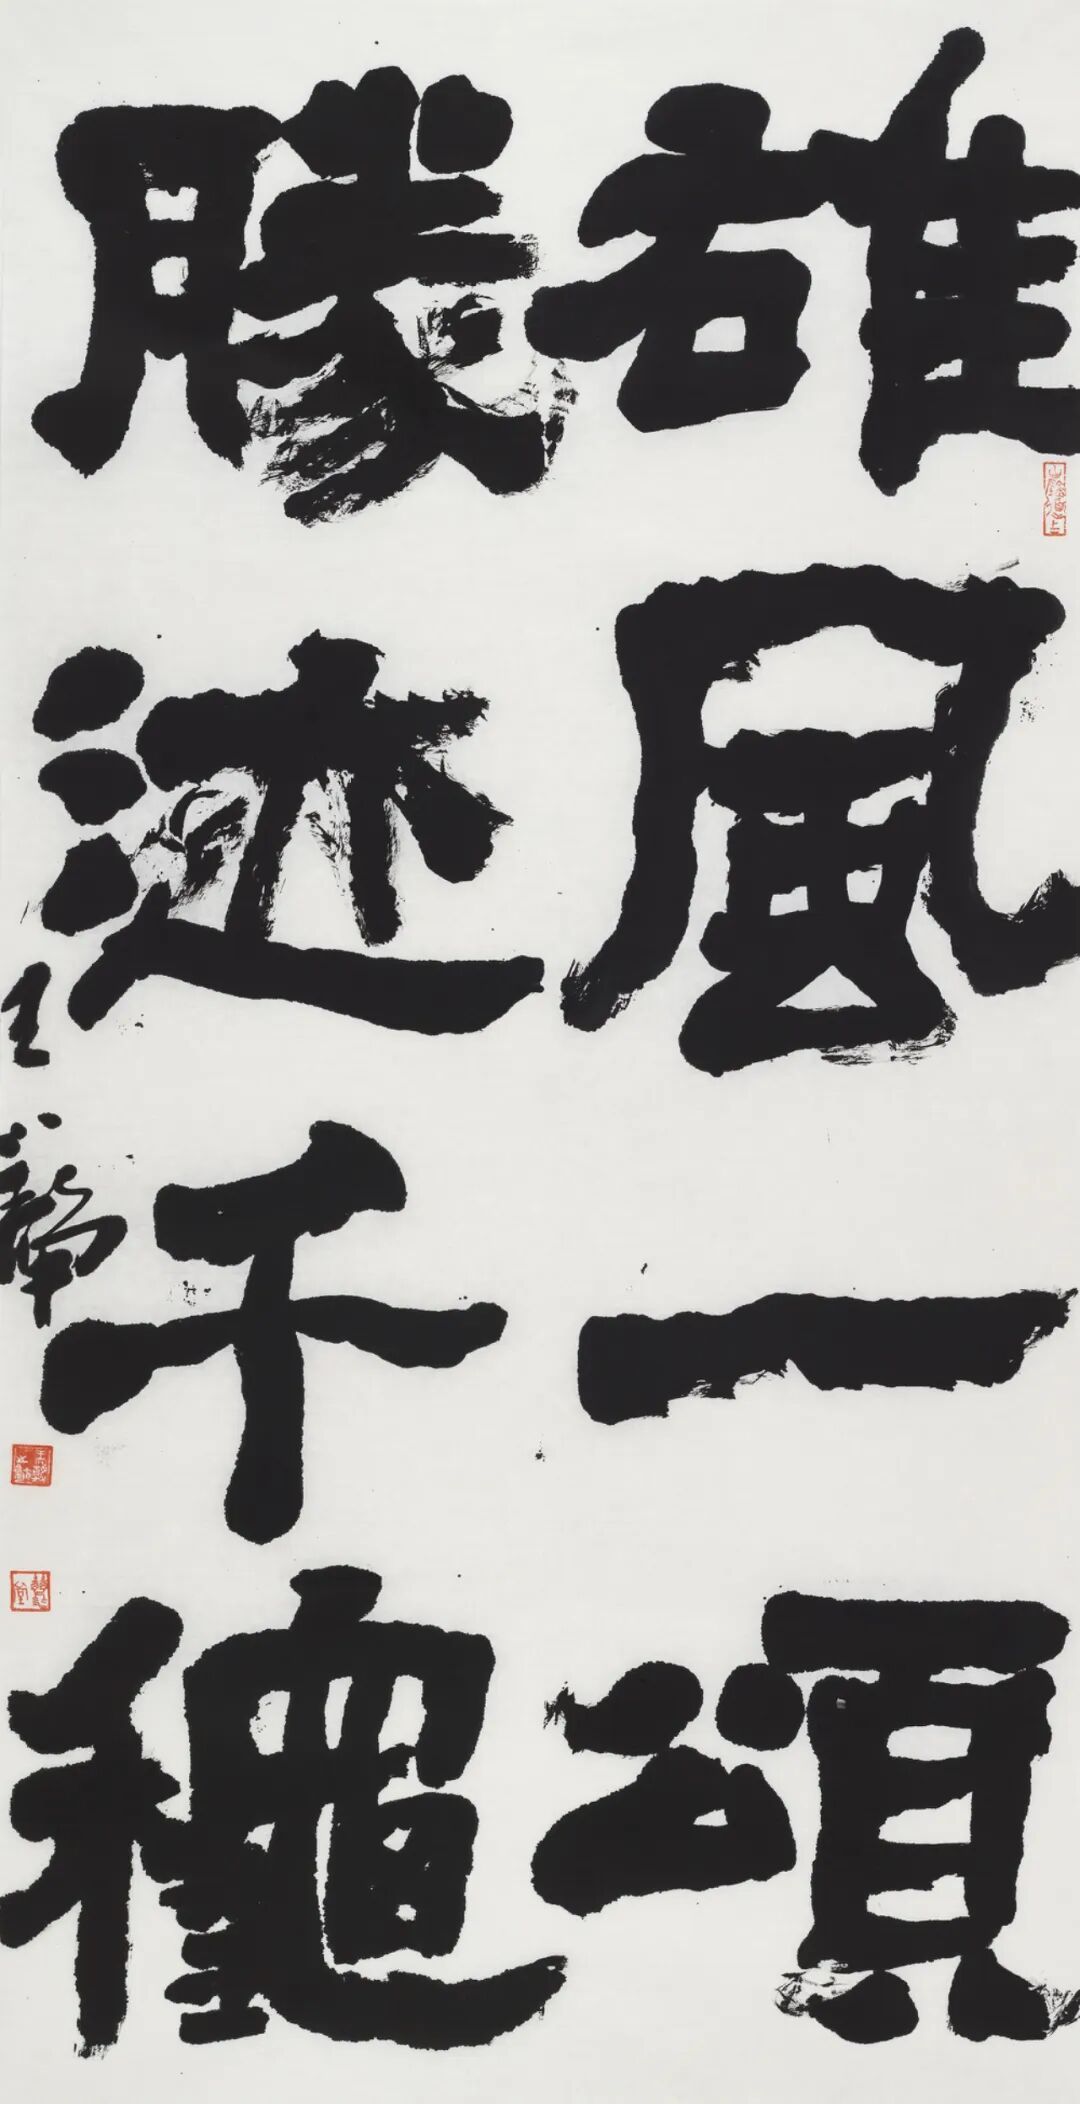 雄風一頌
勝迹千龝
王鏞